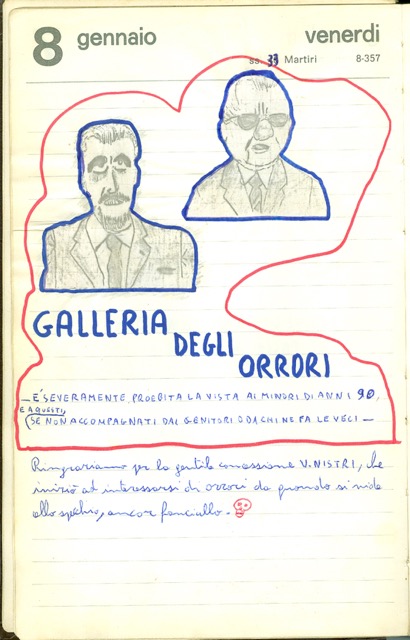 8 gennaio venerdi
ss. 33 Martiri 8-357
GALLERIA
DEGLI
ORRORI
— E' SEVERAMENTE PROIBITA LA VISTA AI MINORI DI ANNI 90,
E A QUESTI,
(SE NON ACCOMPAGNATI DAL GENITORI O DA CHI NE FA LE VECI —
Ringraziamo per la gentile concessione V. NISTRI, che
iniziò ad interessarsi di orrori da quando si vide
allo specchio, ancor fanciullo.